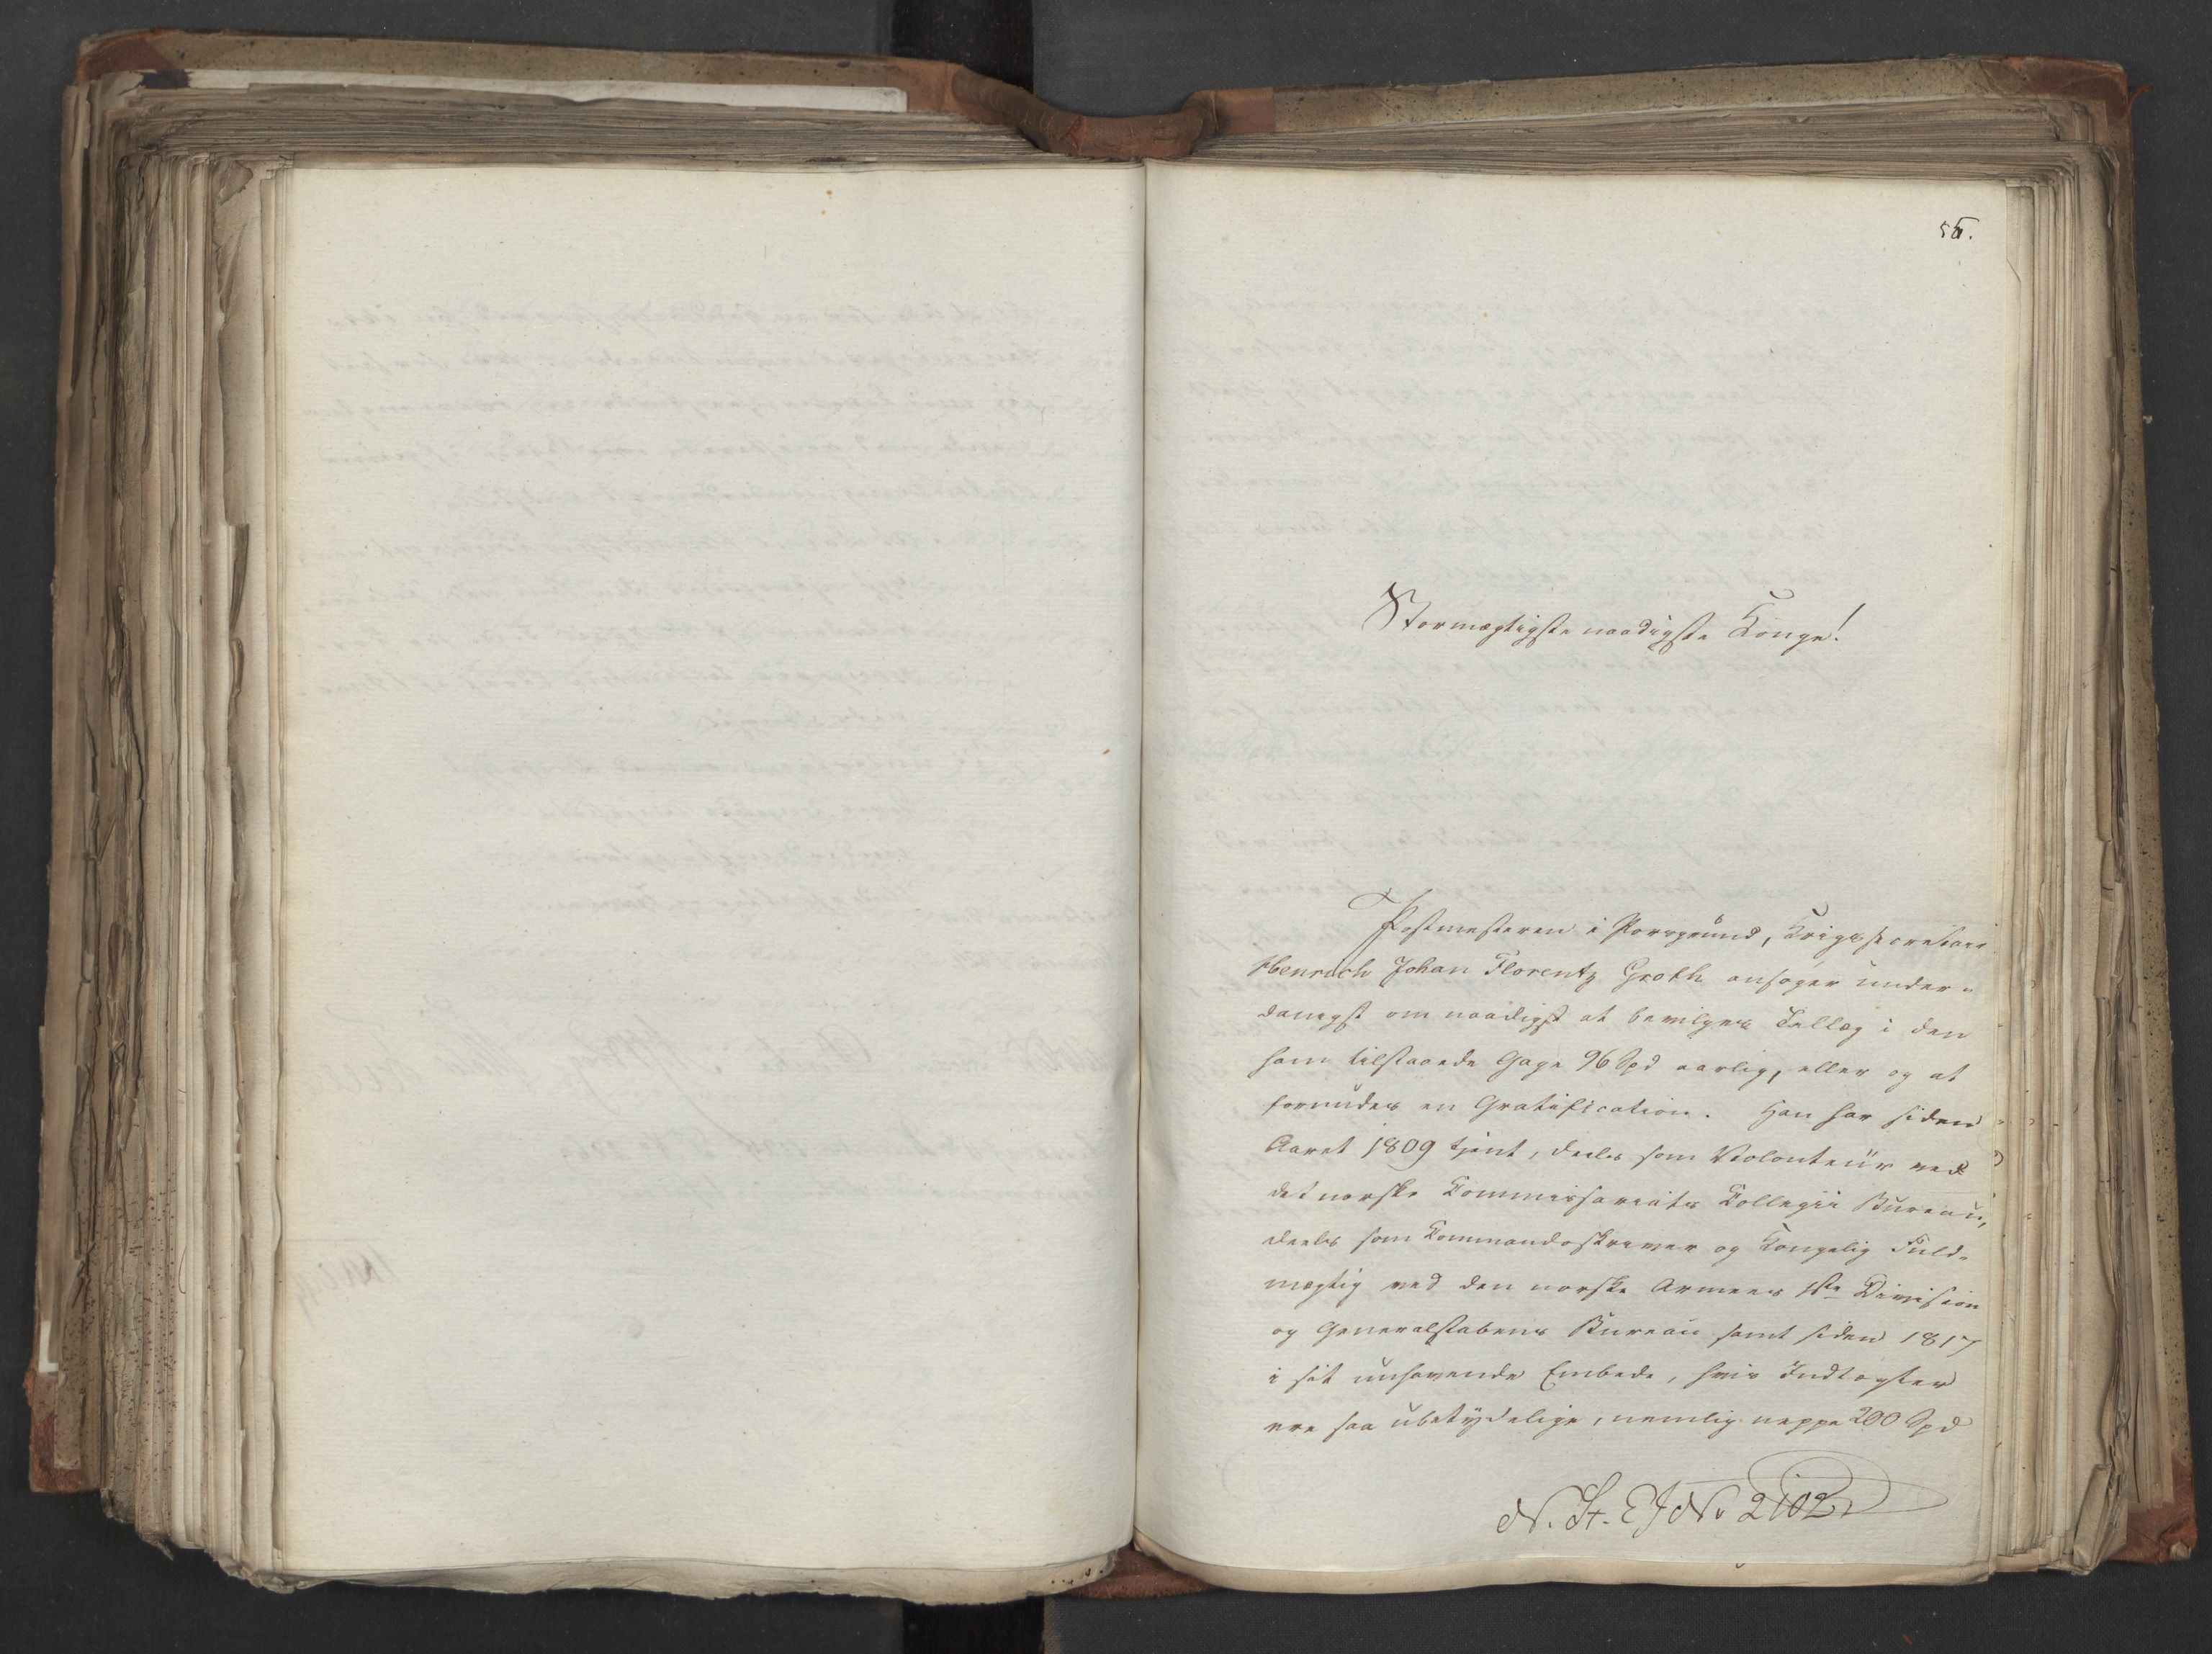 Stormægtigste naadigste Konge!
Postmesteren i Porsgrund, Krigssecretair
Henrich Johan Florentz Groth ansøger under-
danigst om naadigst at bevilges Tillæg i den
ham tilstaaede Gage 96 Spd aarlig, eller og at
forundes en Gratification. Han har siden
Aaret 1809 tjent, deels som Volonteur ved
det norske Kommissariats Kollegii Bureau,
deels som Kommandoskriver og Kongelig Fuld-
mægtig ved den norske Armees 1ste Division
og Generalstabens Bureau samt siden 1817
i sit unhavende Embede, hvis Indtægter
ere saa ubetydelige, nemlig neppe 200 Spd
N. St. E J No 2102